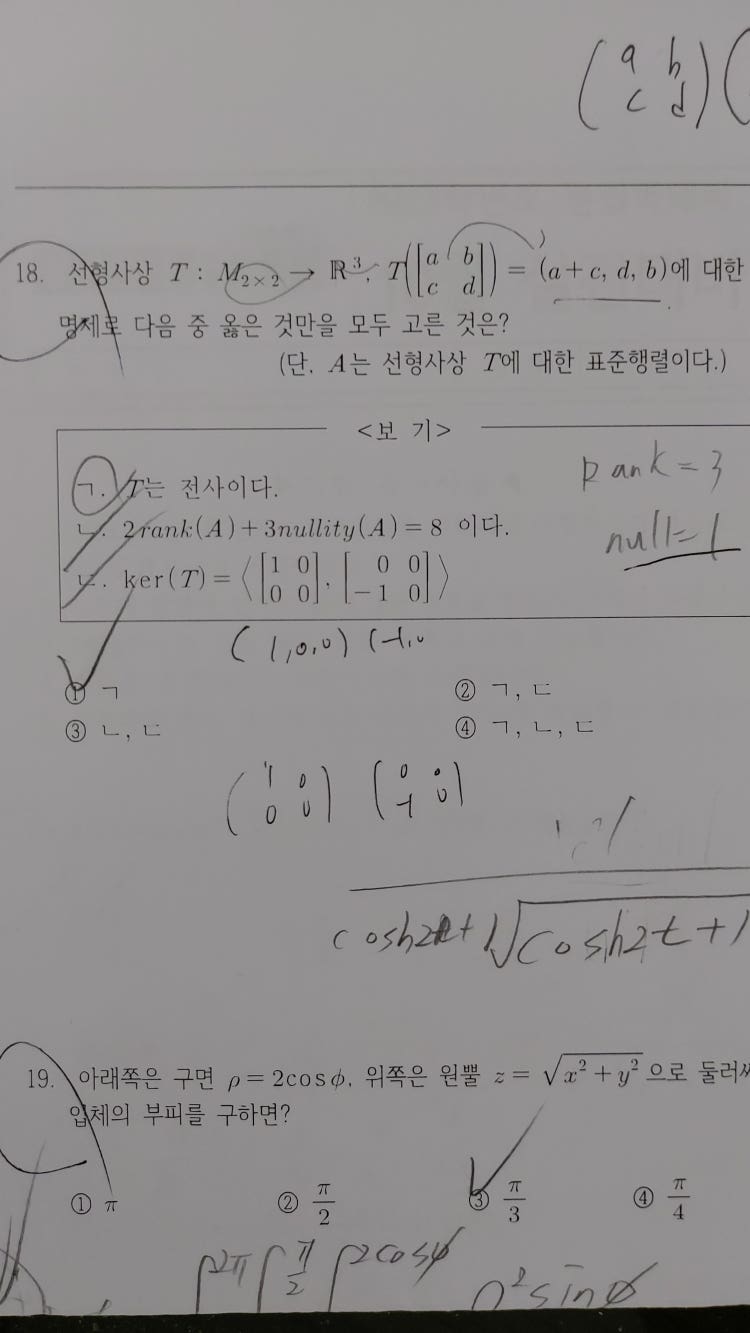 (a b
c d) (
18. 선형사상 T : M₂ₓ₂ → ℝ³, T([a b
c d]) = (a+c, d, b)에 대한
명제로 다음 중 옳은 것만을 모두 고른 것은?
(단, A는 선형사상 T에 대한 표준행렬이다.)
<보 기>
ㄱ. T는 전사이다.
Rank = 3
ㄴ. 2rank(A)+3nullity(A)=8 이다.
null=1
ㄷ. ker(T)=⟨[1 0
0 0], [0 0
-1 0]⟩
(1,0,0) (-1,0
① ㄱ ② ㄱ, ㄷ
③ ㄴ, ㄷ ④ ㄱ, ㄴ, ㄷ
(1 0
0 0) (0 0
-1 0)
cosh2t+1√cosh2t+1
19. 아래쪽은 구면 ρ=2cosφ, 위쪽은 원뿔 z=√x²+y² 으로 둘러싸
입체의 부피를 구하면?
① π ② π/2 ③ π/3 ④ π/4
∫2π ∫π/2 ∫2cosφ ρ²sinφ